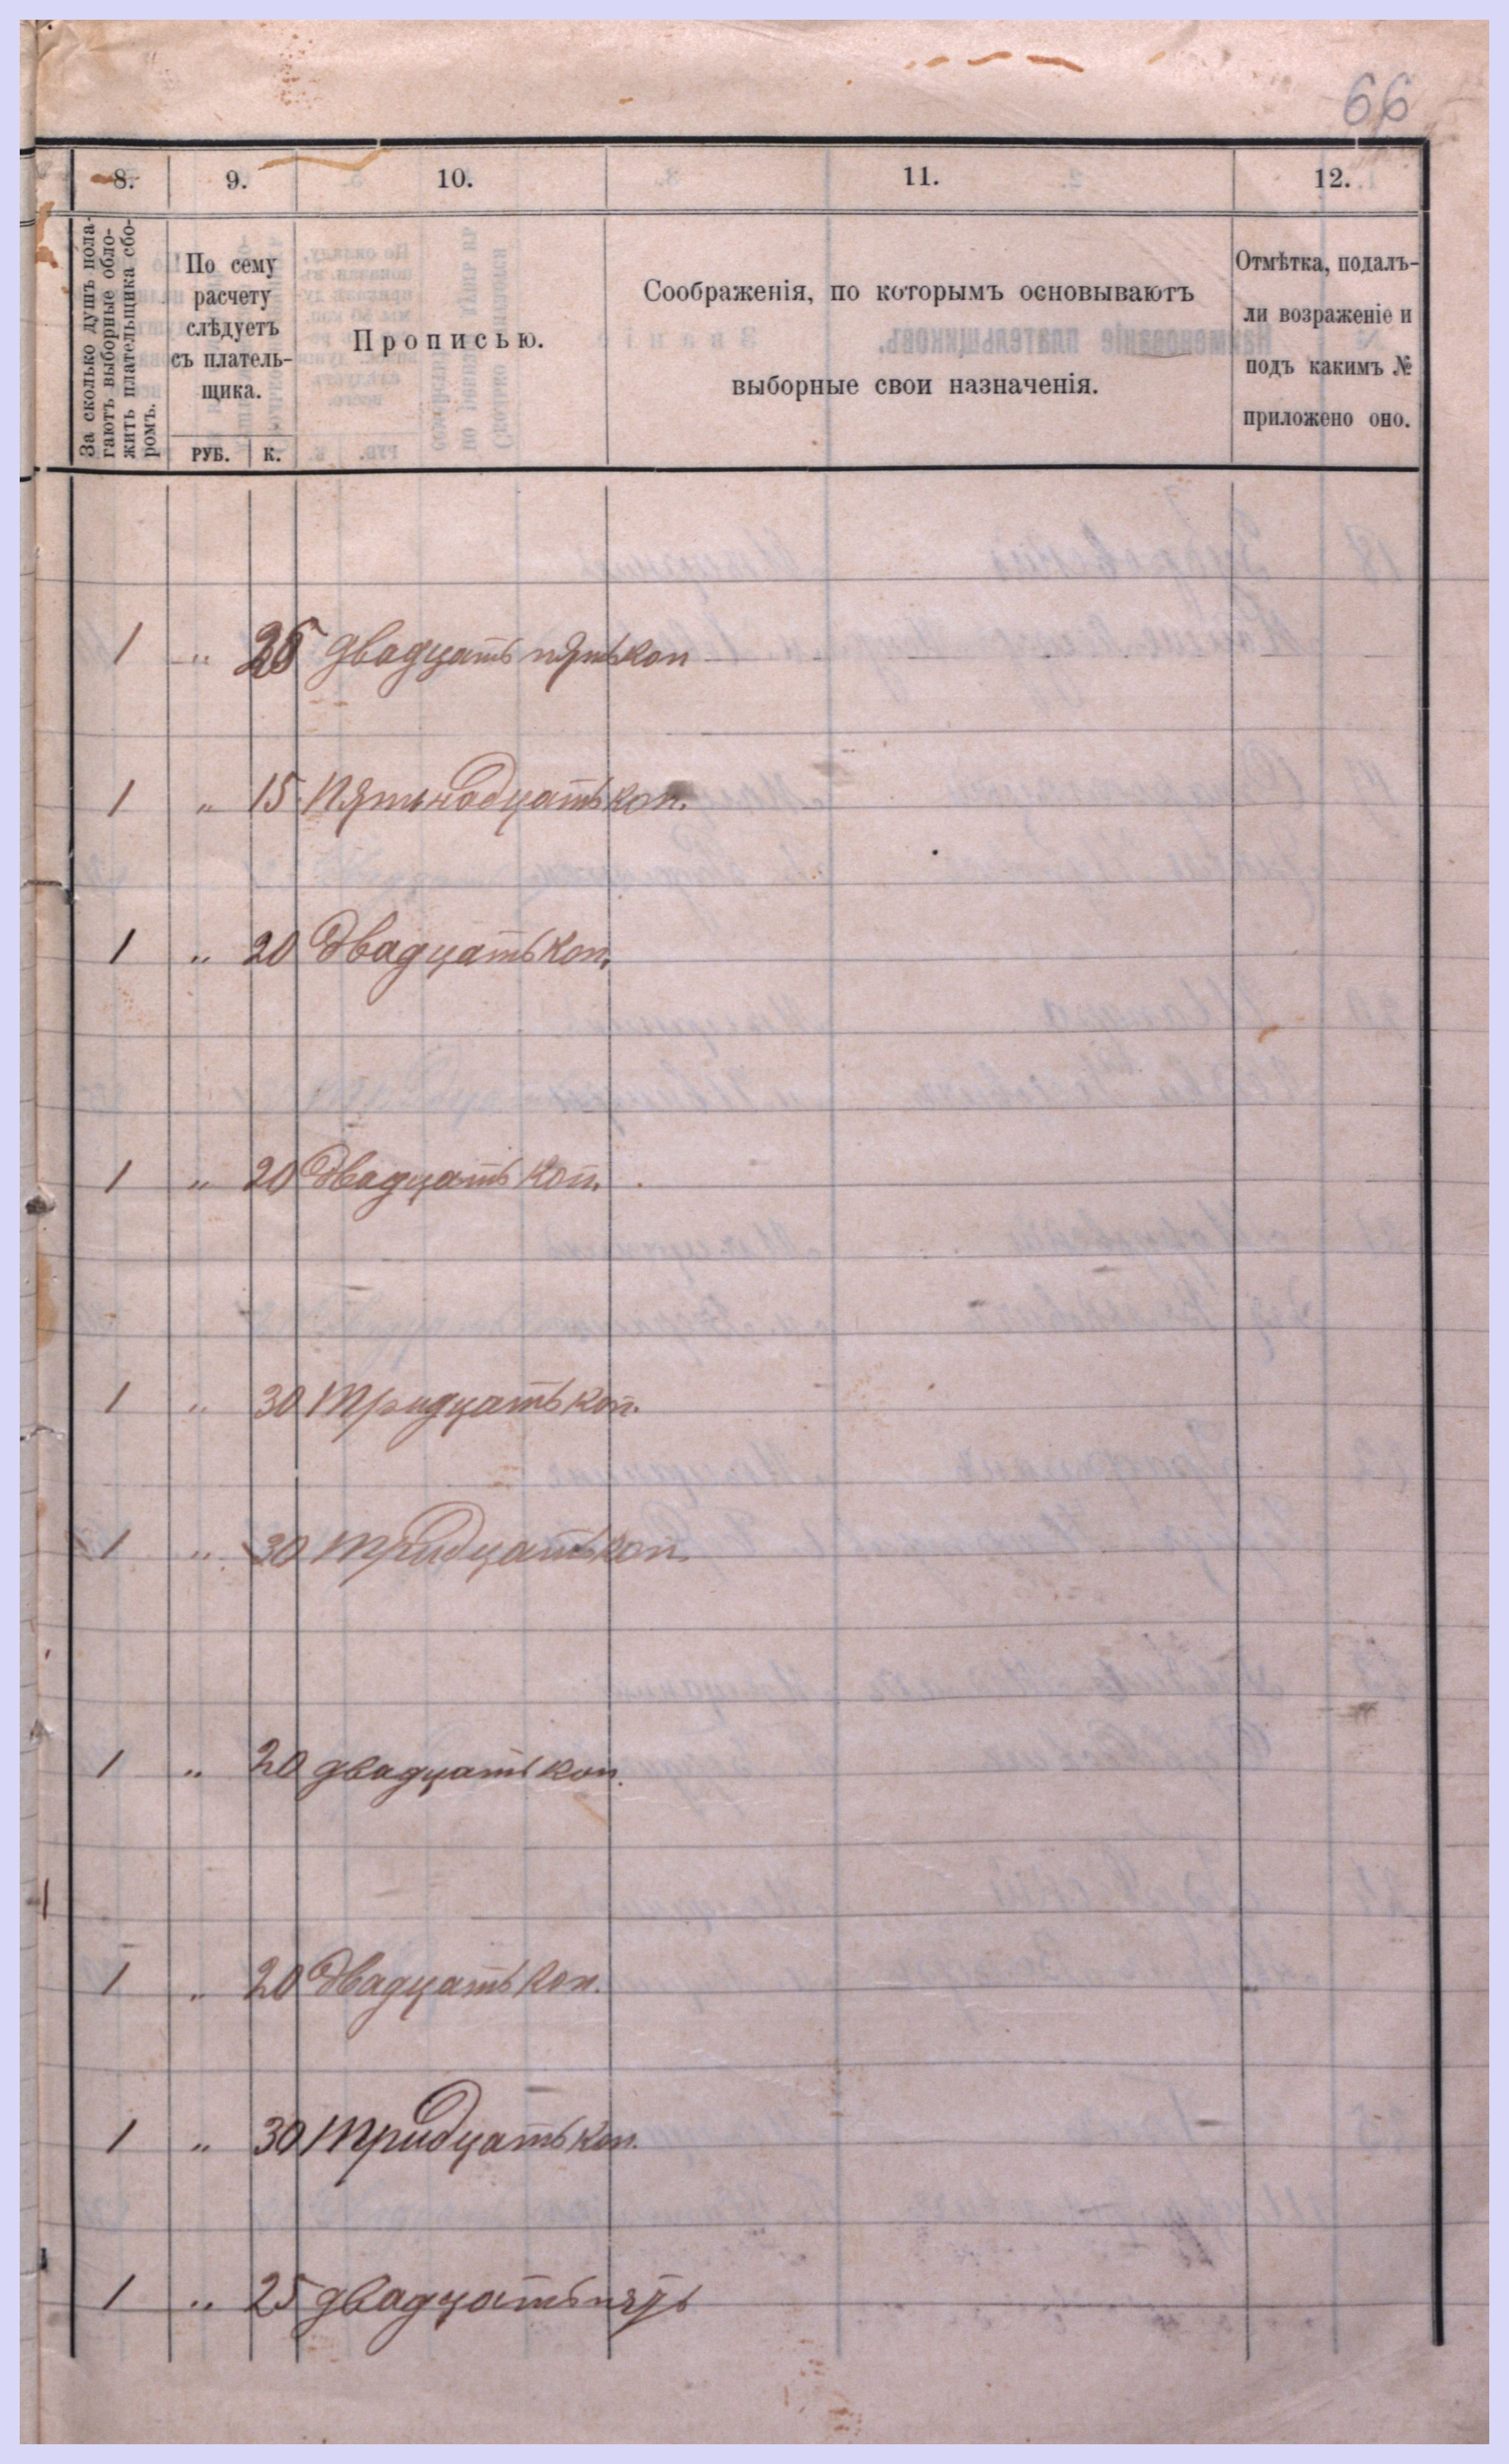 66
8. 9. 10. 11. 12.
За сколько душъ пола-
гаютъ выборные обло-
жить плательщика сбо-
ромъ.
По сему
расчету
слѣдуетъ
съ платель-
щика.
РУБ. К.
Прописью.
Соображенія, по которымъ основываютъ
выборные свои назначенія.
Отмѣтка, подалъ-
ли возраженіе и
подъ какимъ №
приложено оно.
1 „ 25 двадцать пять коп
1 „ 15 пятьнадцать коп.
1 „ 20 двадцать коп.
1 „ 20 двадцать коп.
1 „ 30 тридцать коп.
1 „ 30 тридцать коп.
1 „ 20 двадцать коп.
1 „ 20 двадцать коп.
1 „ 30 тридцать коп.
1 „ 25 двадцать пять